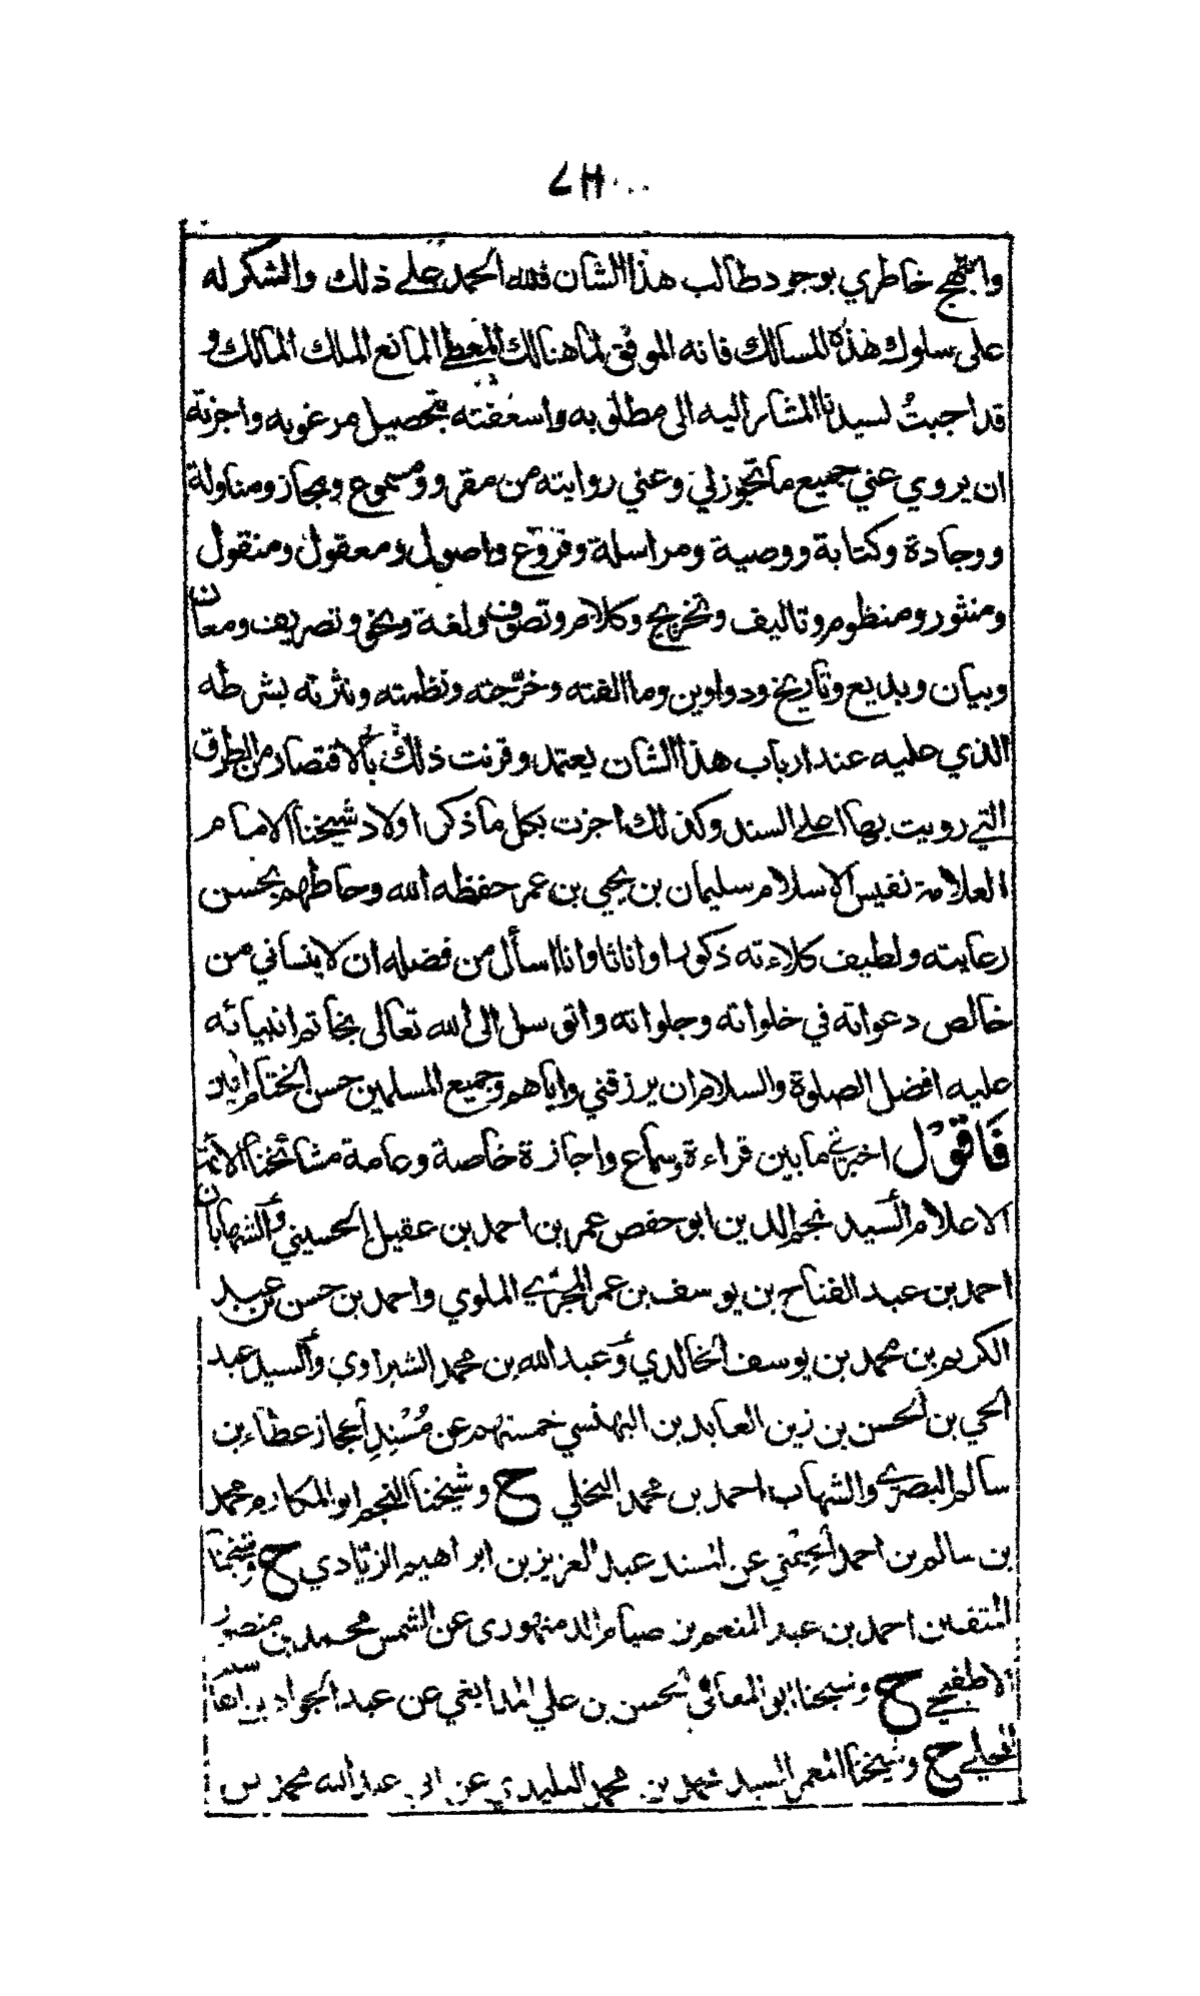 وابتهج خاطري بوجود طالب هذا الشان فلله الحمد على ذلك والشكر له
على سلوك هذه المسالك فانه الموفق لما هنالك المعطي المانع الملك المالك و
قد اجبتُ لسيدنا المشار اليه الى مطلوبه واسعفته بتحصيل مرغوبه واجزته
ان يروي عني جميع ما تجوز لي وعني روايته من مقرو ومسموع ومجاز ومناولة
ووجادة وكتابة ووصية ومراسلة وفروع واصول ومعقول ومنقول
ومنثور ومنظوم وتاليف وتخريج وكلام وتصوف ولغة ونحو وتصريف ومعان
وبيان وبديع وتاريخ ودواوين وما الفته وخرّجته ونظمته ونثرته بشرطه
الذي عليه عند ارباب هذا الشان يعتمد وقرنت ذلك بالاقتصار من الطرق
التي رويت بها اعلى السند وكذلك اجزت بكل ما ذكر اولاد شيخنا الامام
العلامة نفيس الاسلام سليمان بن يحيى بن عمر حفظه الله وحاطهم بحسن
رعايته ولطيف كلاءته ذكورا واناثا وانا اسأل من فضله ان لا ينساني من
خالص دعواته في خلواته وجلواته واتوسل الى الله تعالى بخاتم انبيائه
عليه افضل الصلوة والسلام ان يرزقني واياهم وجميع المسلمين حسن الختام امين
فَاقول اخبرني ما بين قراءة وسماع واجازة خاصة وعامة مشائخنا الائمة
الاعلام السيد نجم الدين ابو حفص عمر بن احمد بن عقيل الحسيني والشهابان
احمد بن عبد الفتاح بن يوسف بن عمر المجيري الملوي واحمد بن حسن بن عبد
الكريم بن محمد بن يوسف الخالدي وعبد الله بن محمد الشبراوي والسيد عبد
الحي بن الحسن بن زين العابدين البهنسي خمستهم عن مُسْنِدِ الحجاز عبد الله بن
سالم البصري والشهاب احمد بن محمد النخلي ح وشيخنا النجم ابو المكارم محمد
بن سالم بن احمد الحفني عن المسند عبد العزيز بن ابراهيم الزيادي ح وشيخنا
المتفنن احمد بن عبد المنعم بن صيام الدمنهوري عن الشمس محمد بن منصور
الاطفيحي ح وشيخنا ابو المعالي الحسن بن علي المدابغي عن عبد الجواد بن القاسم
المحلي ح وشيخنا المعمر السيد محمد بن محمد البليدي عن ابي عبد الله محمد بن